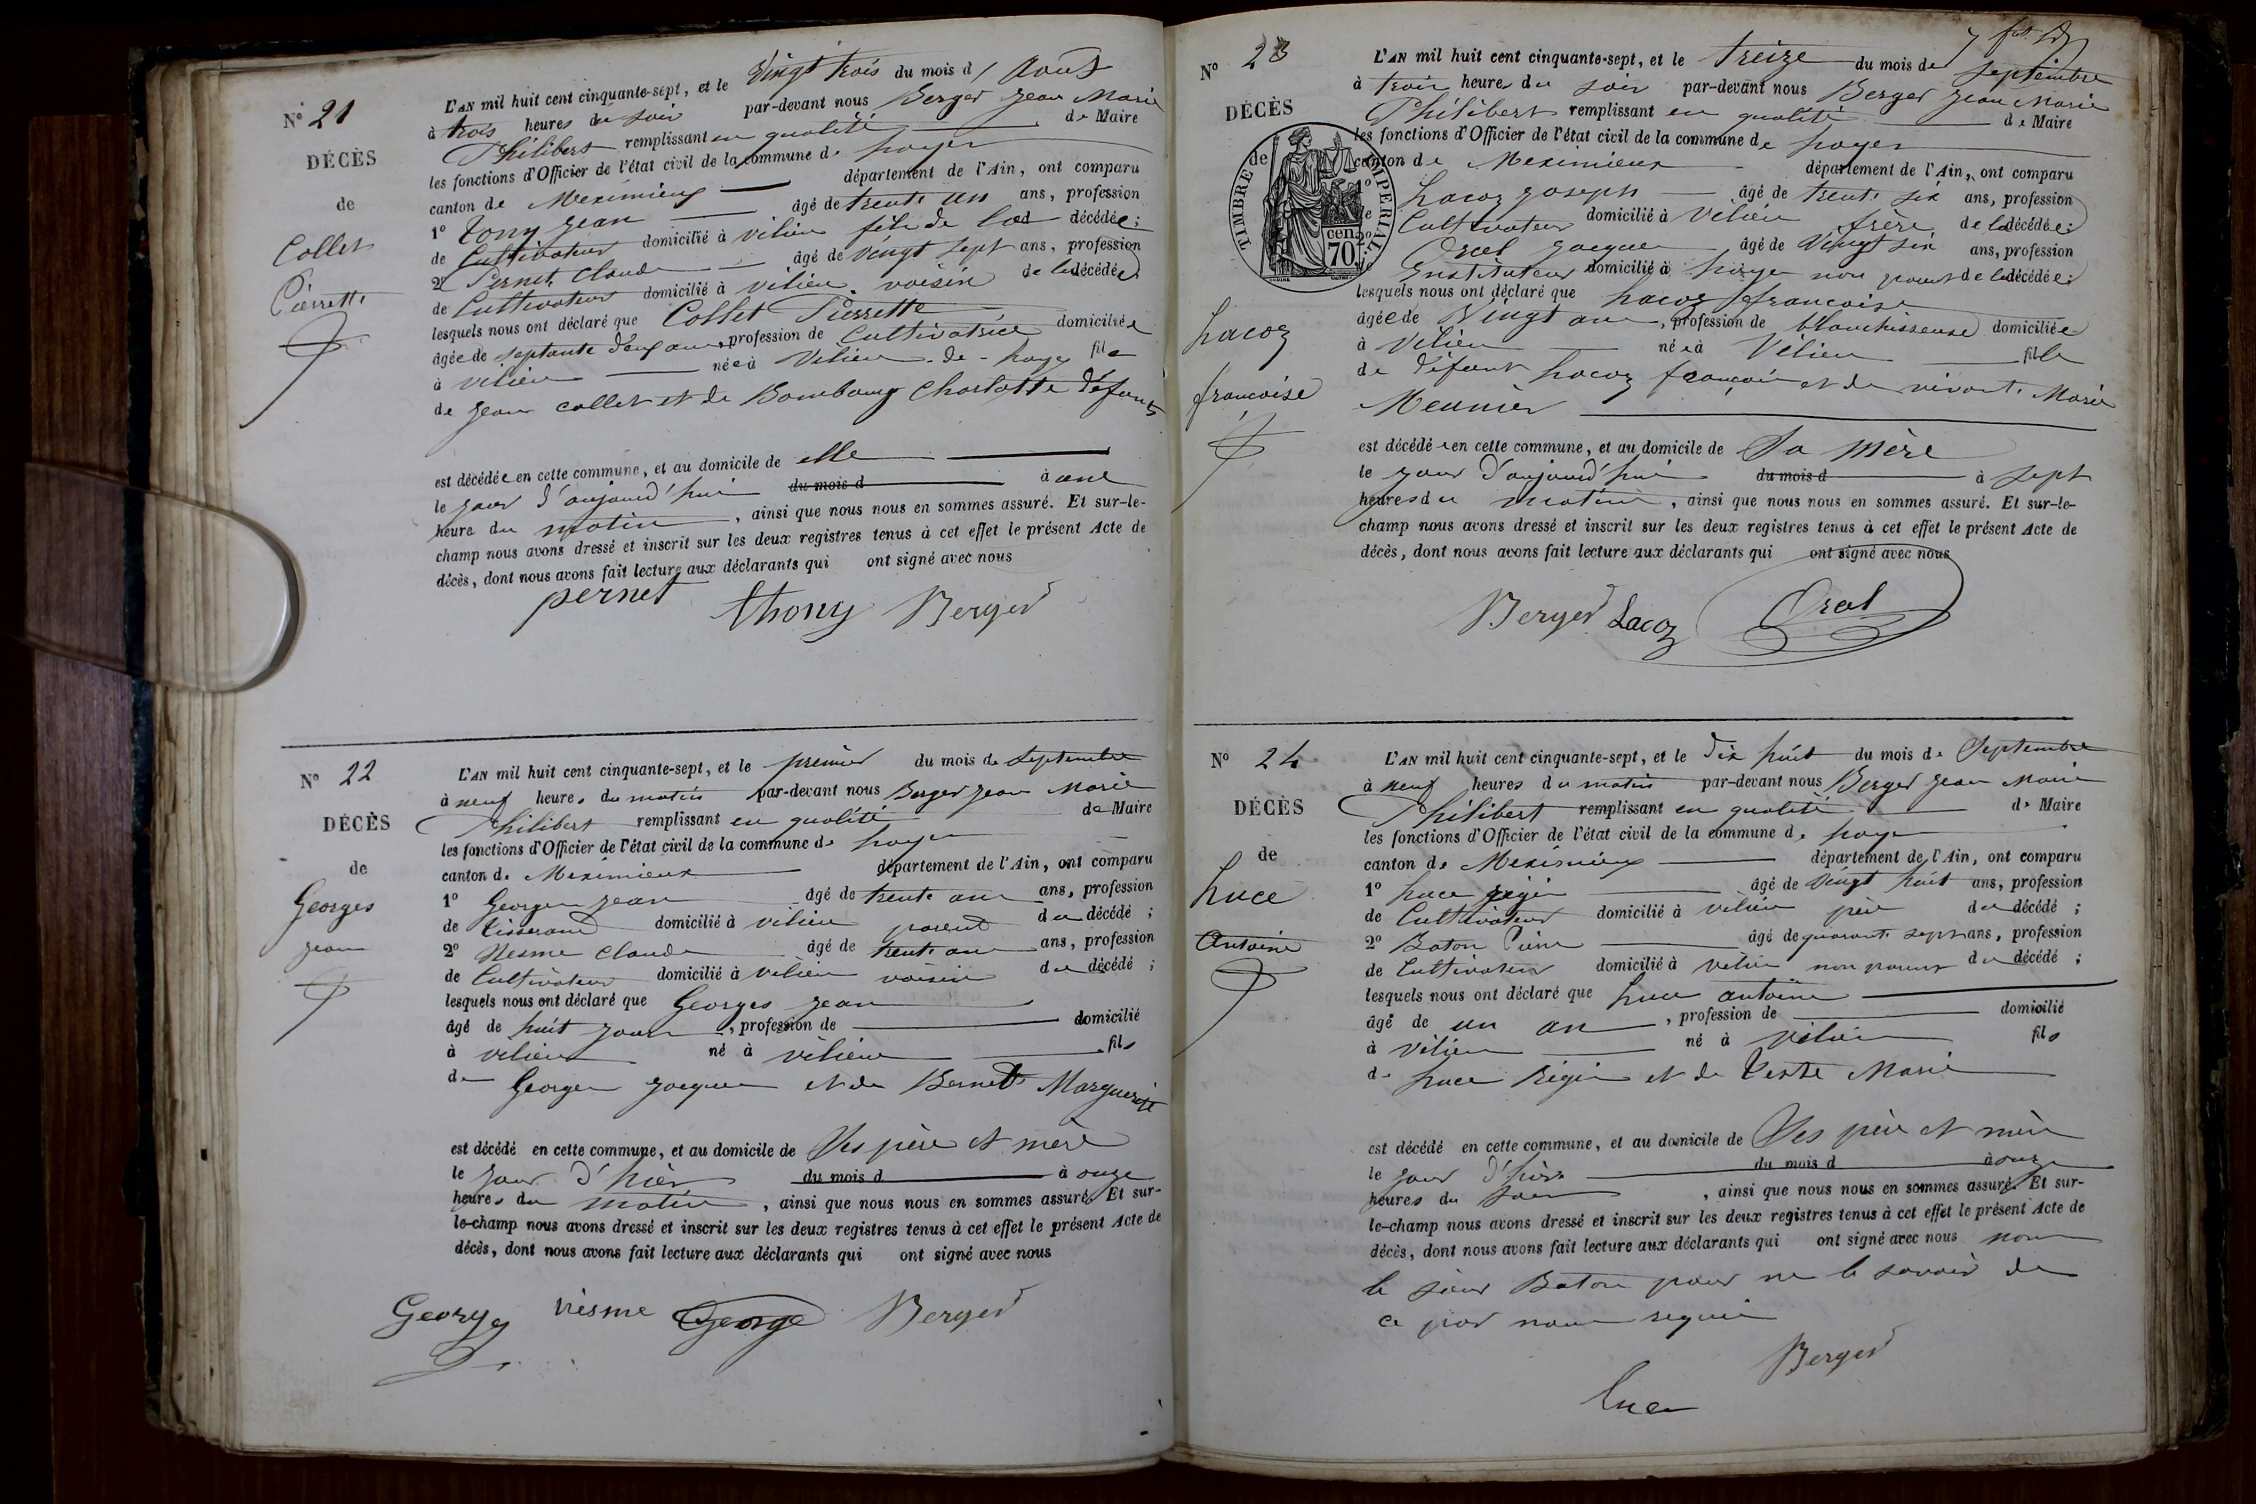 N° 21
DÉCÈS
de
Collet
Pierrette
L'AN mil huit cent cinquante-sept, et le Vingt trois du mois d'Aout
à trois heures du soir par-devant nous Berger Jean Marie
Philibert remplissant en qualité de Maire
les fonctions d'Officier de l'état civil de la commune de loyes
canton de Meximieux département de l'Ain, ont comparu
1° Tony Jean âgé de trente un ans, profession
de Cultivateur domicilié à vilieu fils de la décédée;
2° Pernet Claude âgé de vingt sept ans, profession
de Cultivateur domicilié à vilieu voisin de la décédée
lesquels nous ont déclaré que Collet Pierrette
âgée de septante deux ans, profession de Cultivatrice domiciliée
à vilieu née à Vilieu de loyes fille
de Jean collet et de Charlotte défunts
est décédée en cette commune, et au domicile de elle
le jour d'aujourd'hui du mois d à une
heure du matin, ainsi que nous nous en sommes assuré. Et sur-le-
champ nous avons dressé et inscrit sur les deux registres tenus à cet effet le présent Acte de
décès, dont nous avons fait lecture aux déclarants qui ont signé avec nous
pernet thony Berger
N° 22
DÉCÈS
de
Georges
jean
L'AN mil huit cent cinquante-sept, et le premier du mois de Septembre
à neuf heures du matin par-devant nous Berger Jean Marie
Philibert remplissant en qualité de Maire
les fonctions d'Officier de l'état civil de la commune de loyes
canton de Meximieux département de l'Ain, ont comparu
1° Georges jean âgé de trente ans, profession
de tisserand domicilié à vilieu parent du décédé;
2° Nesme Claude âgé de trente ans, profession
de Cultivateur domicilié à vilieu voisin du décédé;
lesquels nous ont déclaré que Georges jean
âgé de huit jours, profession de domicilié
à vilieu né à vilieu fils
de Georges jacques et de Bernet Marguerite
est décédé en cette commune, et au domicile de Ses père et mère
le jour d'hier du mois d à onze
heures du matin, ainsi que nous nous en sommes assuré. Et sur-
le-champ nous avons dressé et inscrit sur les deux registres tenus à cet effet le présent Acte de
décès, dont nous avons fait lecture aux déclarants qui ont signé avec nous
George nesme George Berger
N° 23
DÉCÈS
de
Lacoz
francoise
TIMBRE IMPERIAL
70 cen
L'AN mil huit cent cinquante-sept, et le treize du mois de septembre
à trois heures du soir par-devant nous Berger Jean Marie
Philibert remplissant en qualité de Maire
les fonctions d'Officier de l'état civil de la commune de loyes
canton de Meximieux département de l'Ain, ont comparu
1° Lacoz joseph âgé de trente six ans, profession
de Cultivateur domicilié à Vilieu frère de la décédée;
2° Orcel jacques âgé de Vingt six ans, profession
Instituteur domicilié à loyes non parent de la décédée;
lesquels nous ont déclaré que Lacoz francoise
âgée de Vingt ans, profession de blanchisseuse domiciliée
à Vilieu née à Vilieu fille
de défunt Lacoz françois et de vivante Marie
Meunier
est décédée en cette commune, et au domicile de Sa Mère
le jour d'aujourd'hui du mois d à sept
heures du matin, ainsi que nous nous en sommes assuré. Et sur-le-
champ nous avons dressé et inscrit sur les deux registres tenus à cet effet le présent Acte de
décès, dont nous avons fait lecture aux déclarants qui ont signé avec nous
Berger Lacoz Orcel
N° 24
DÉCÈS
de
Luce
Antoine
L'AN mil huit cent cinquante-sept, et le dix huit du mois de Septembre
à neuf heures du matin par-devant nous Berger Jean Marie
Philibert remplissant en qualité de Maire
les fonctions d'Officier de l'état civil de la commune de loyes
canton de Meximieux département de l'Ain, ont comparu
1° Luce régis âgé de Vingt huit ans, profession
de Cultivateur domicilié à vilieu père du décédé;
2° Baton Pierre âgé de quarante sept ans, profession
de Cultivateur domicilié à vilieu non parent du décédé;
lesquels nous ont déclaré que Luce antoine
âgé de un an, profession de domicilié
à Vilieu né à Vilieu fils
de Luce Régis et de Marie
est décédé en cette commune, et au domicile de Ses père et mère
le jour d'hier du mois d à onze
heures du soir, ainsi que nous nous en sommes assuré. Et sur-
le-champ nous avons dressé et inscrit sur les deux registres tenus à cet effet le présent Acte de
décès, dont nous avons fait lecture aux déclarants qui ont signé avec nous non
le sieur Baton pour ne le savoir de
ce par nous requis
Berger
Luce